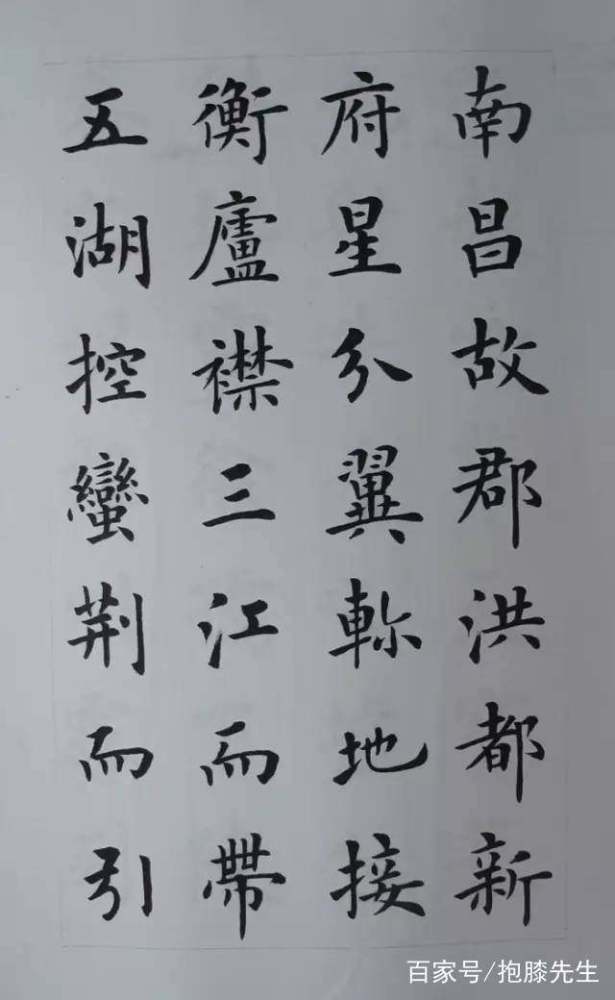 南昌故郡洪都新
府星分翼軫地接
衡廬襟三江而帶
五湖控蠻荆而引
百家号/抱膝先生